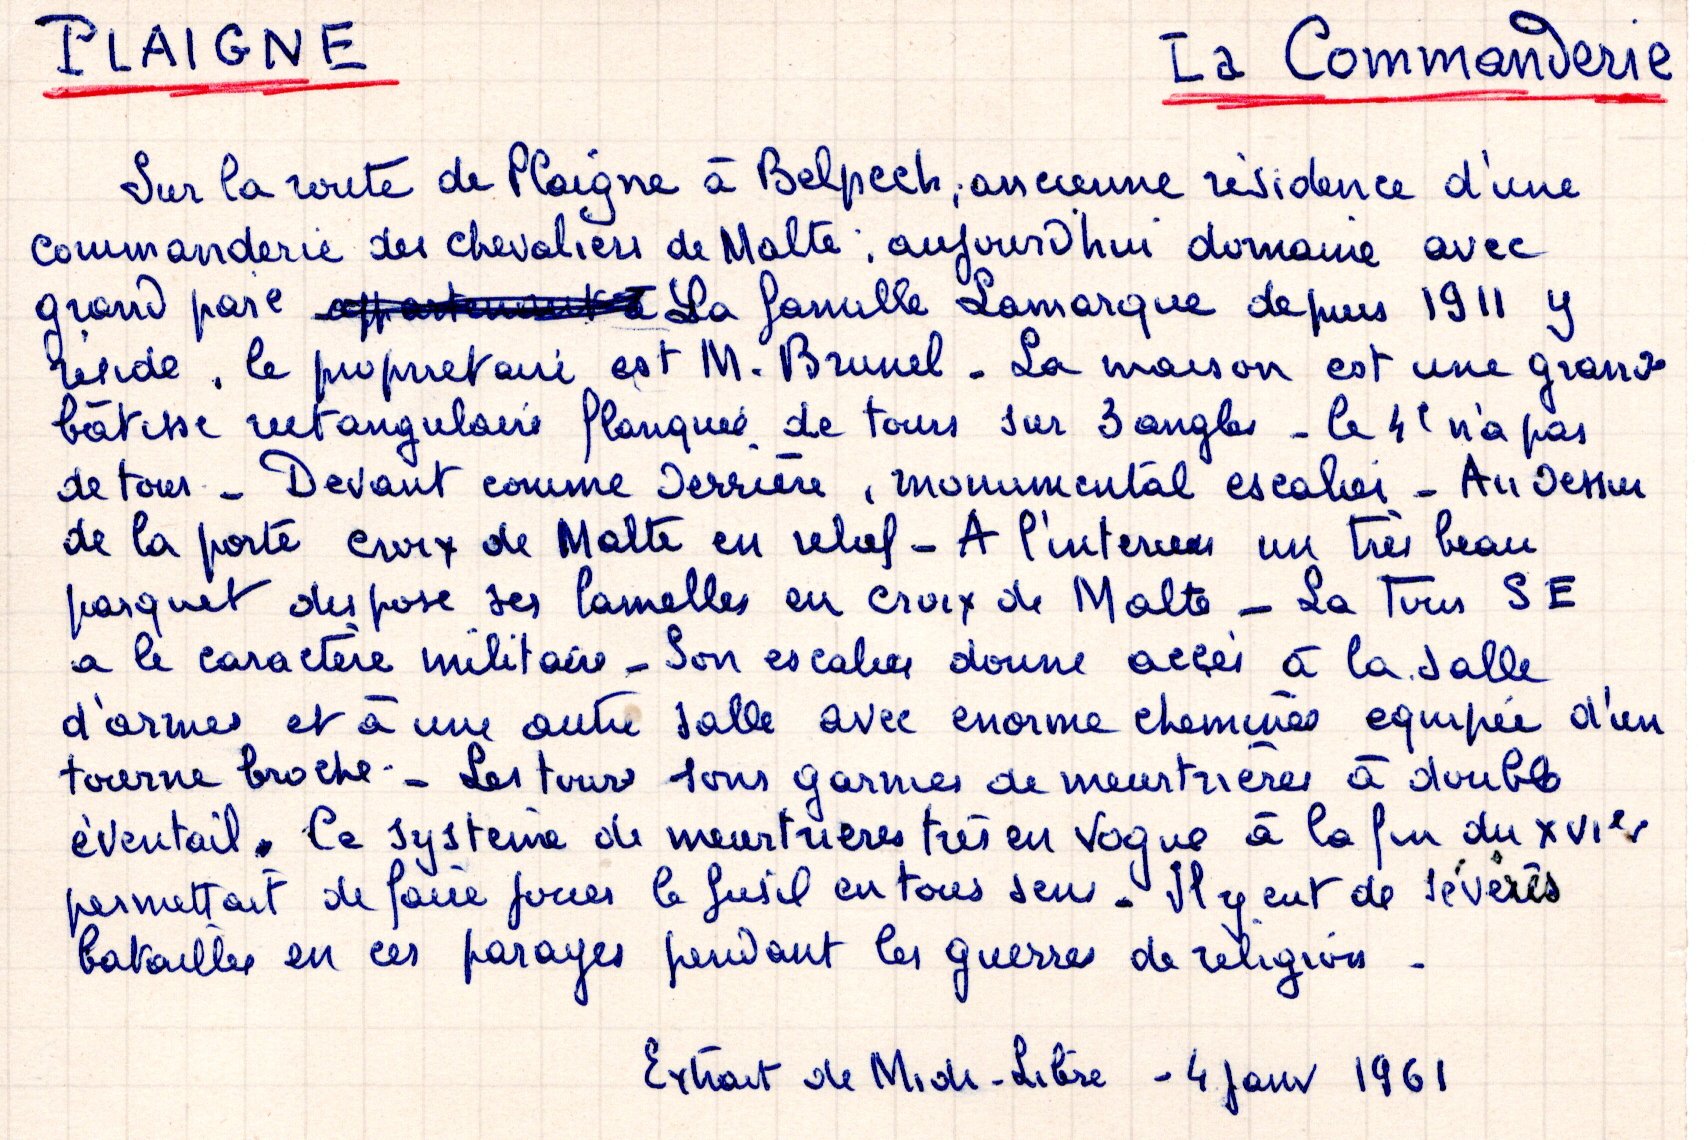 PLAIGNE La Commanderie
Sur la route de Plaigne à Belpech, ancienne résidence d'une
commanderie des chevaliers de Malte ; aujourd'hui domaine avec
grand parc appartenant à La famille Lamarque depuis 1911 y
réside, le propriétaire est M. Brunel - La maison est une grande
bâtisse rectangulaire flanquée de tours sur 3 angles - le 4e n'a pas
de tour - Devant comme derrière, monumental escalier - Au dessus
de la porte croix de Malte en relief - A l'interieur un très beau
parquet dispose ses lamelles en croix de Malte - La Tour SE
a le caractère militaire - Son escalier donne accès à la salle
d'armes et à une autre salle avec enorme cheminée equipée d'un
tourne broche - Les tours sons garnies de meurtrières à double
éventail. Ce système de meurtrieres très en vogue à la fin du XVIe
permettait de faire jouer le fusil en tous sens - Il y eut de sévères
batailles en ces parages pendant les guerres de religion -
Extrait de Midi-Libre - 4 janv 1961